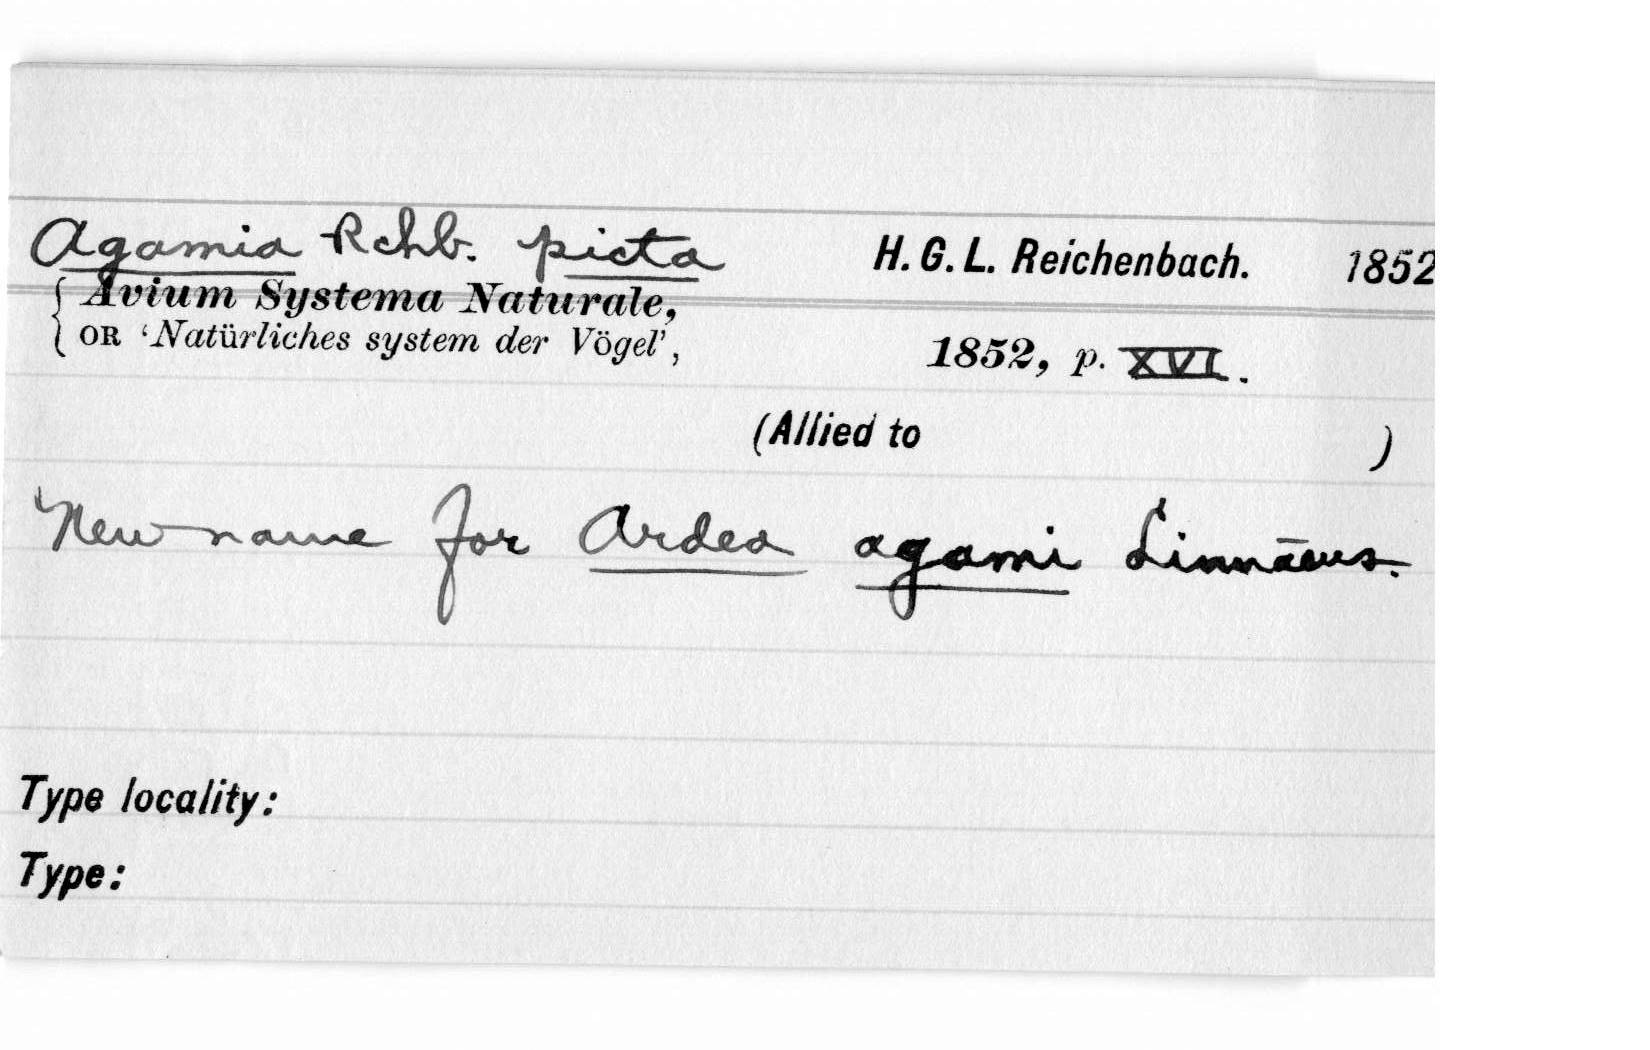 Agamia Rchb. picta H. G. L. Reichenbach. 1852
{ Avium Systema Naturale,
{ OR ‘Natürliches system der Vögel’, 1852, p. XVI.
(Allied to )
New name for Ardea agami Linnāeus.
Type locality:
Type: